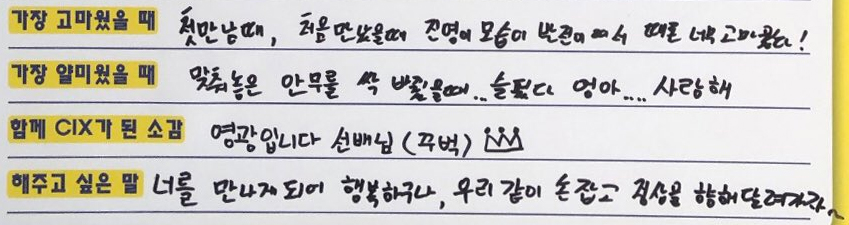 가장 고마웠을 때 첫만남때, 처음만났을때 진영이 모습이 반전이여서 때론 너무 고마웠다!
가장 얄미웠을 때 맞춰놓은 안무를 싹 바꿨을때... 슬펐다 영아.... 사랑해
함께 CIX가 된 소감 영광입니다 선배님 (꾸벅)
해주고 싶은 말 너를 만나게 되어 행복하구나, 우리 같이 손잡고 정상을 향해 달려가자~